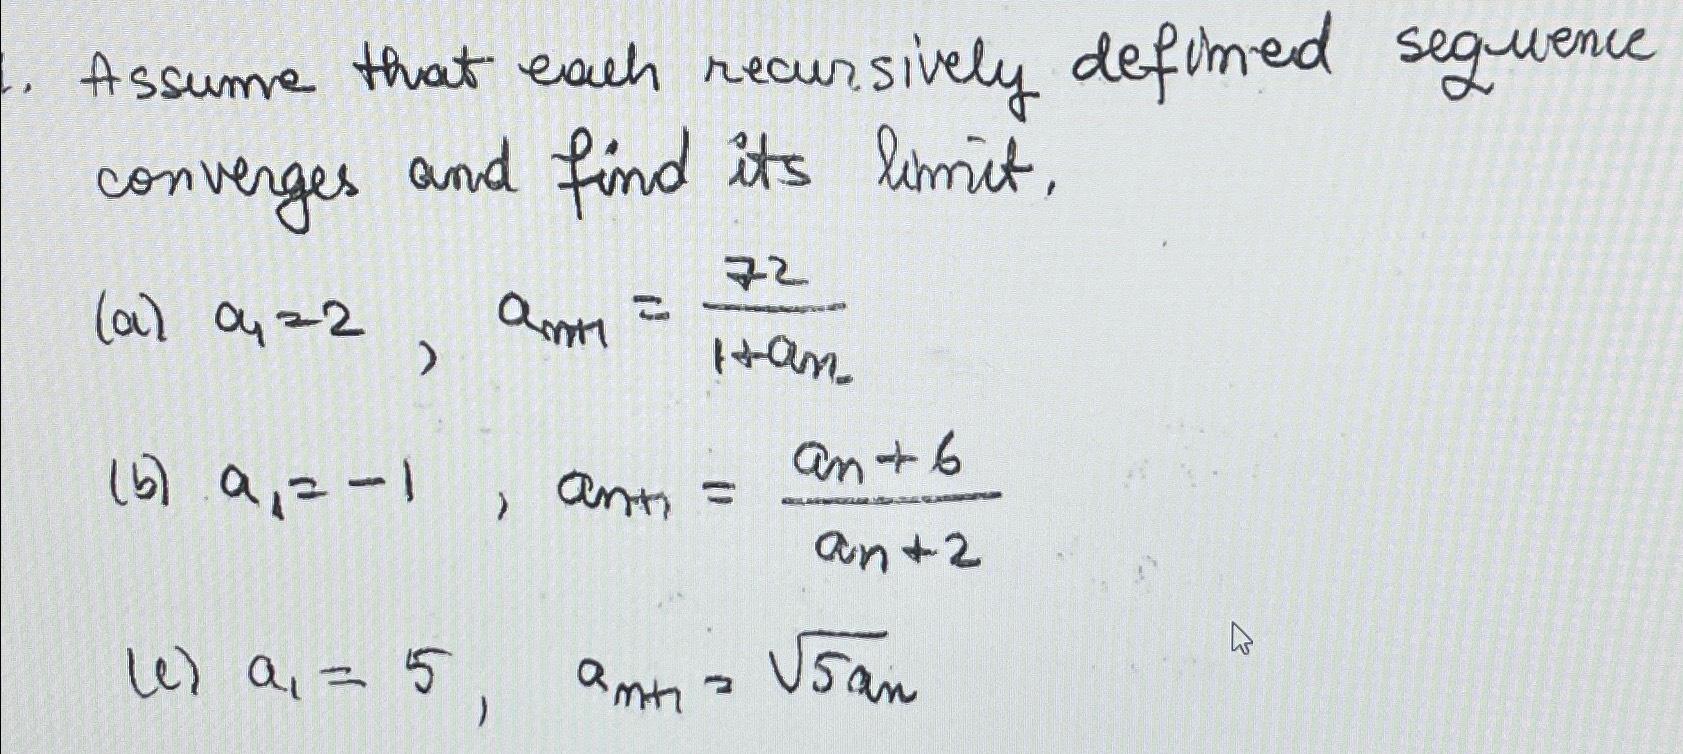 1. Assume that each recursively defined sequence
converges and find its limit.
(a) a₁ = 2 , aₙ₊₁ = 72 / (1 + aₙ)
(b) a₁ = -1 , aₙ₊₁ = (aₙ + 6) / (aₙ + 2)
(c) a₁ = 5 , aₙ₊₁ = √(5aₙ)